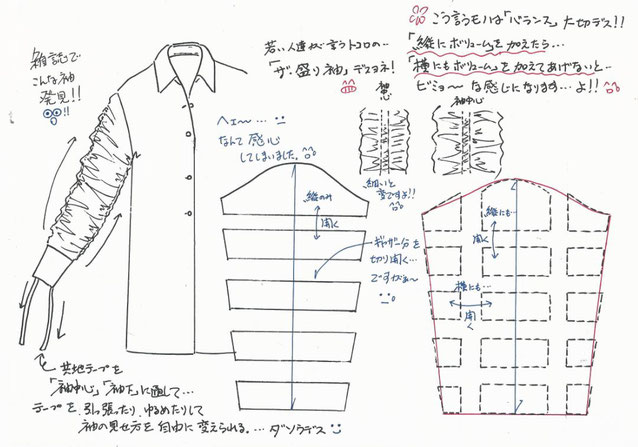 雑誌で
こんな袖
発見!!
若い人達が言うトコロの…
「ザ・盛り袖」デスヨネ!
ヘェ〜…
なんて感心
してしまいました。
こう言うモノは「バランス」大切デス!!
「縦にボリュームを加えたら…
「横にもボリューム」を加えてあげないと…
ビミョ〜な感じになります…よ!!
袖中心
袖中心
細いと
変ですよ!!
縦のみ
開く
ギャザー分を
切り開く…
ですかねぇ〜
縦にも…
開く
横にも…
開く
共地テープを
「袖中心」「袖下」に通して…
テープを、引っ張ったり、ゆるめたりして
袖の見せ方を自由に変えられる。…ダソウデス